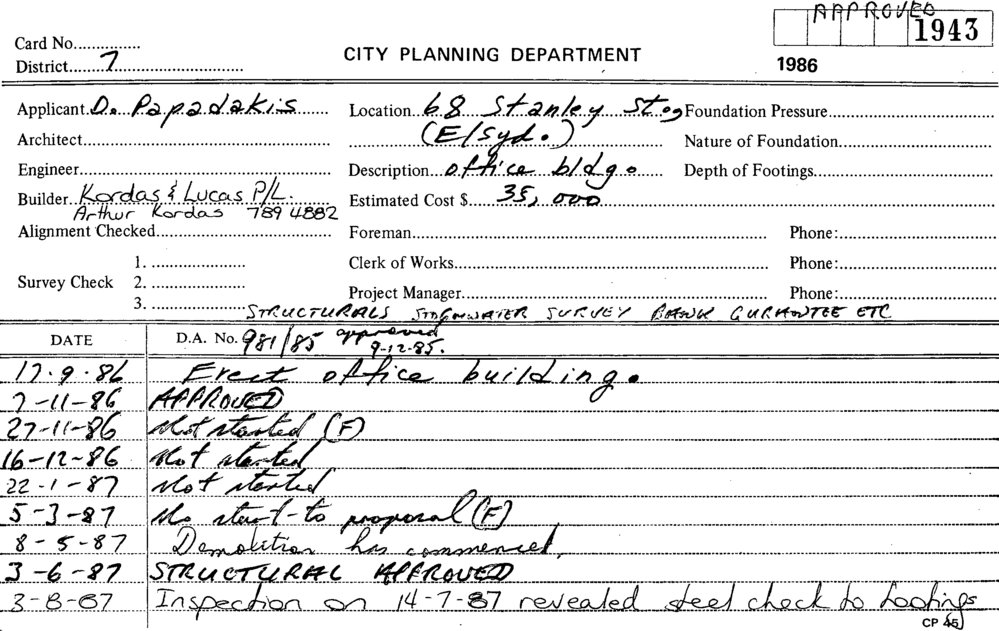 APPROVED
1943
Card No...............
District......7..............................
CITY PLANNING DEPARTMENT
1986
Applicant D. Papadakis Location 68 Stanley St., Foundation Pressure
Architect (E/Syd.) Nature of Foundation
Engineer Description office bldg. Depth of Footings
Builder Kordas & Lucas P/L. Estimated Cost $ 35,000
Arthur Kordas 789 4882
Alignment Checked Foreman Phone:
1. Clerk of Works Phone:
Survey Check 2.
Project Manager Phone:
3.
STRUCTURALS STORMWATER SURVEY BANK GURANTEE ETC
DATE D.A. No. 981/85 approved 9-12-85.
17.9.86 Erect office building.
7-11-86 APPROVED
27-11-86 Not started (F)
16-12-86 Not started
22-1-87 Not started
5-3-87 No start to proposal (F)
8-5-87 Demolition has commenced.
3-6-87 STRUCTURAL APPROVED
3-8-87 Inspection on 14-7-87 revealed steel check to footings
CP 45